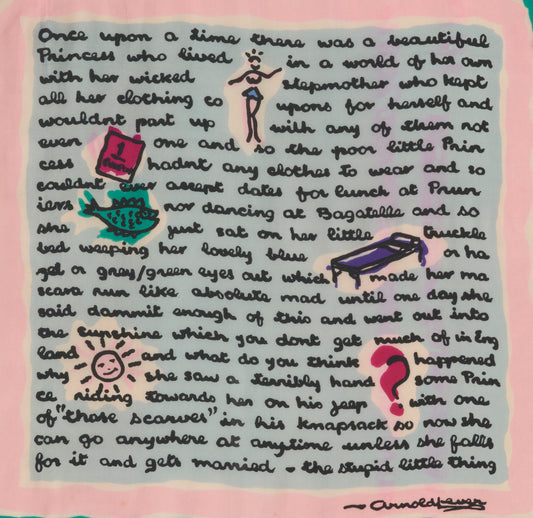 Once upon a time there was a beautiful
Princess who lived in a world of her own
with her wicked stepmother who kept
all her clothing co upons for herself and
wouldnt part up with any of them not
even one and so the poor little Prin
cess hadnt any clothes to wear and so
couldnt ever assept dates for lunch at Prun
iers nor dancing at Bagatelle and so
she just sat on her little thuckle
bed weeping her lovely blue or ha
zel or grey/green eyes out which made her ma
scara run like absolute mad until one day she
said dammit enough of this and went out into
the sunshine which you dont get much of in Eng
land and what do you think happened
why she saw a terribly hand some Prin
ce riding towards her on his jeep with one
of "those scarves" in his knapsack so now she
can go anywhere at anytime unless she falls
for it and gets married - the stupid little thing
1
~ Arnold Lever